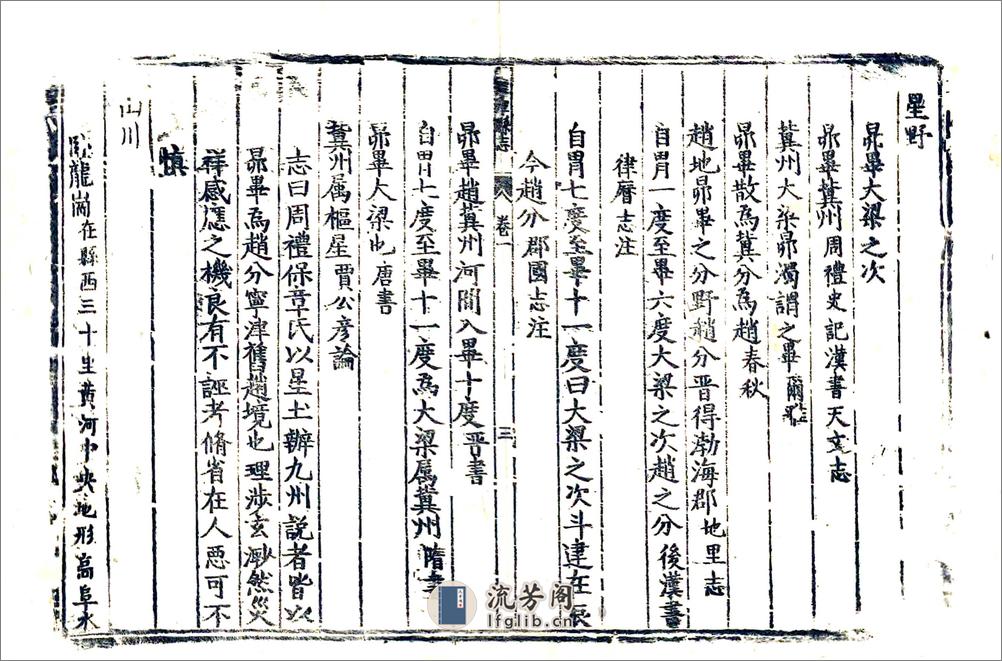 星野
昴畢大梁之次
昴畢冀州周禮史記漢書天文志
冀州大梁昴濁謂之畢爾雅
昴畢散為冀分為趙春秋
趙地昴畢之分野趙分晋得渤海郡地里志
自胃一度至畢六度大梁之次趙之分後漢書
律曆志注
自胃七度至畢十一度曰大梁之次斗建在辰
今趙分郡國志注
卷一
三
昴畢趙冀州河間入畢十度晋書
自胃七度至畢十一度為大梁属冀州隋書
昴畢大梁也唐書
冀州属樞星賈公彦論
志曰周禮保章氏以星土辦九州説者皆以
昴畢為趙分寧津舊趙境也理涉玄渺然災
祥感應之機良有不誣考脩省在人惡可不
慎
山川
卧龍崗在縣西三十里黄河中央地形高阜水
流芳阁
lfglib.cn